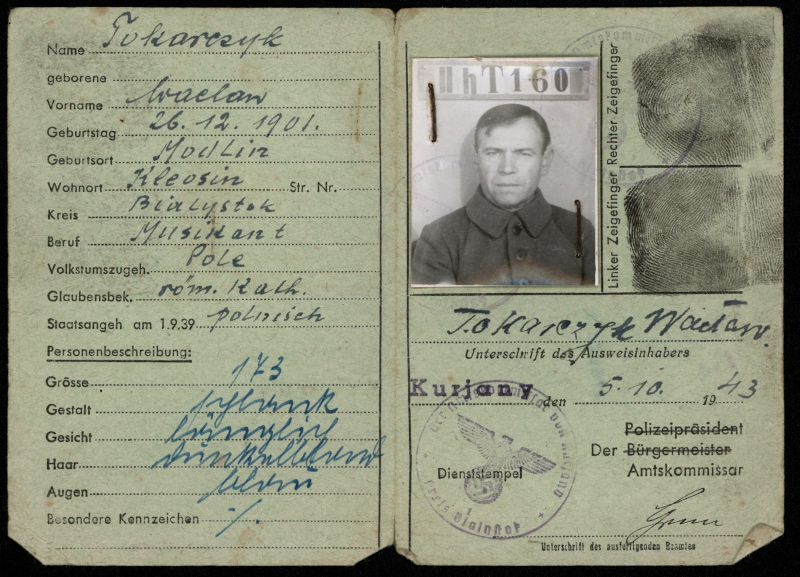 Name Tokarczyk
geborene
Vorname Wacław
Geburtstag 26.12.1901.
Geburtsort Modlin
Wohnort Kleosin Str. Nr.
Kreis Bialystok
Beruf Musikant
Volkstumszugeh. Pole
Glaubensbek. röm. Kath.
Staatsangeh am 1.9.39 polnisch
Personenbeschreibung:
Grösse 173
Gestalt schlank
Gesicht länglich
Haar dunkelblond
Augen blau
Besondere Kennzeichen ·/.
T160
Rechter Zeigefinger
Linker Zeigefinger
Tokarczyk Wacław.
Unterschrift des Ausweisinhabers
Kurjany den 5.10. 1943
Polizeipräsident
Der Bürgermeister
Amtskommissar
Dienststempel
Kreis Bialystok
Unterschrift des ausfertigenden Beamten